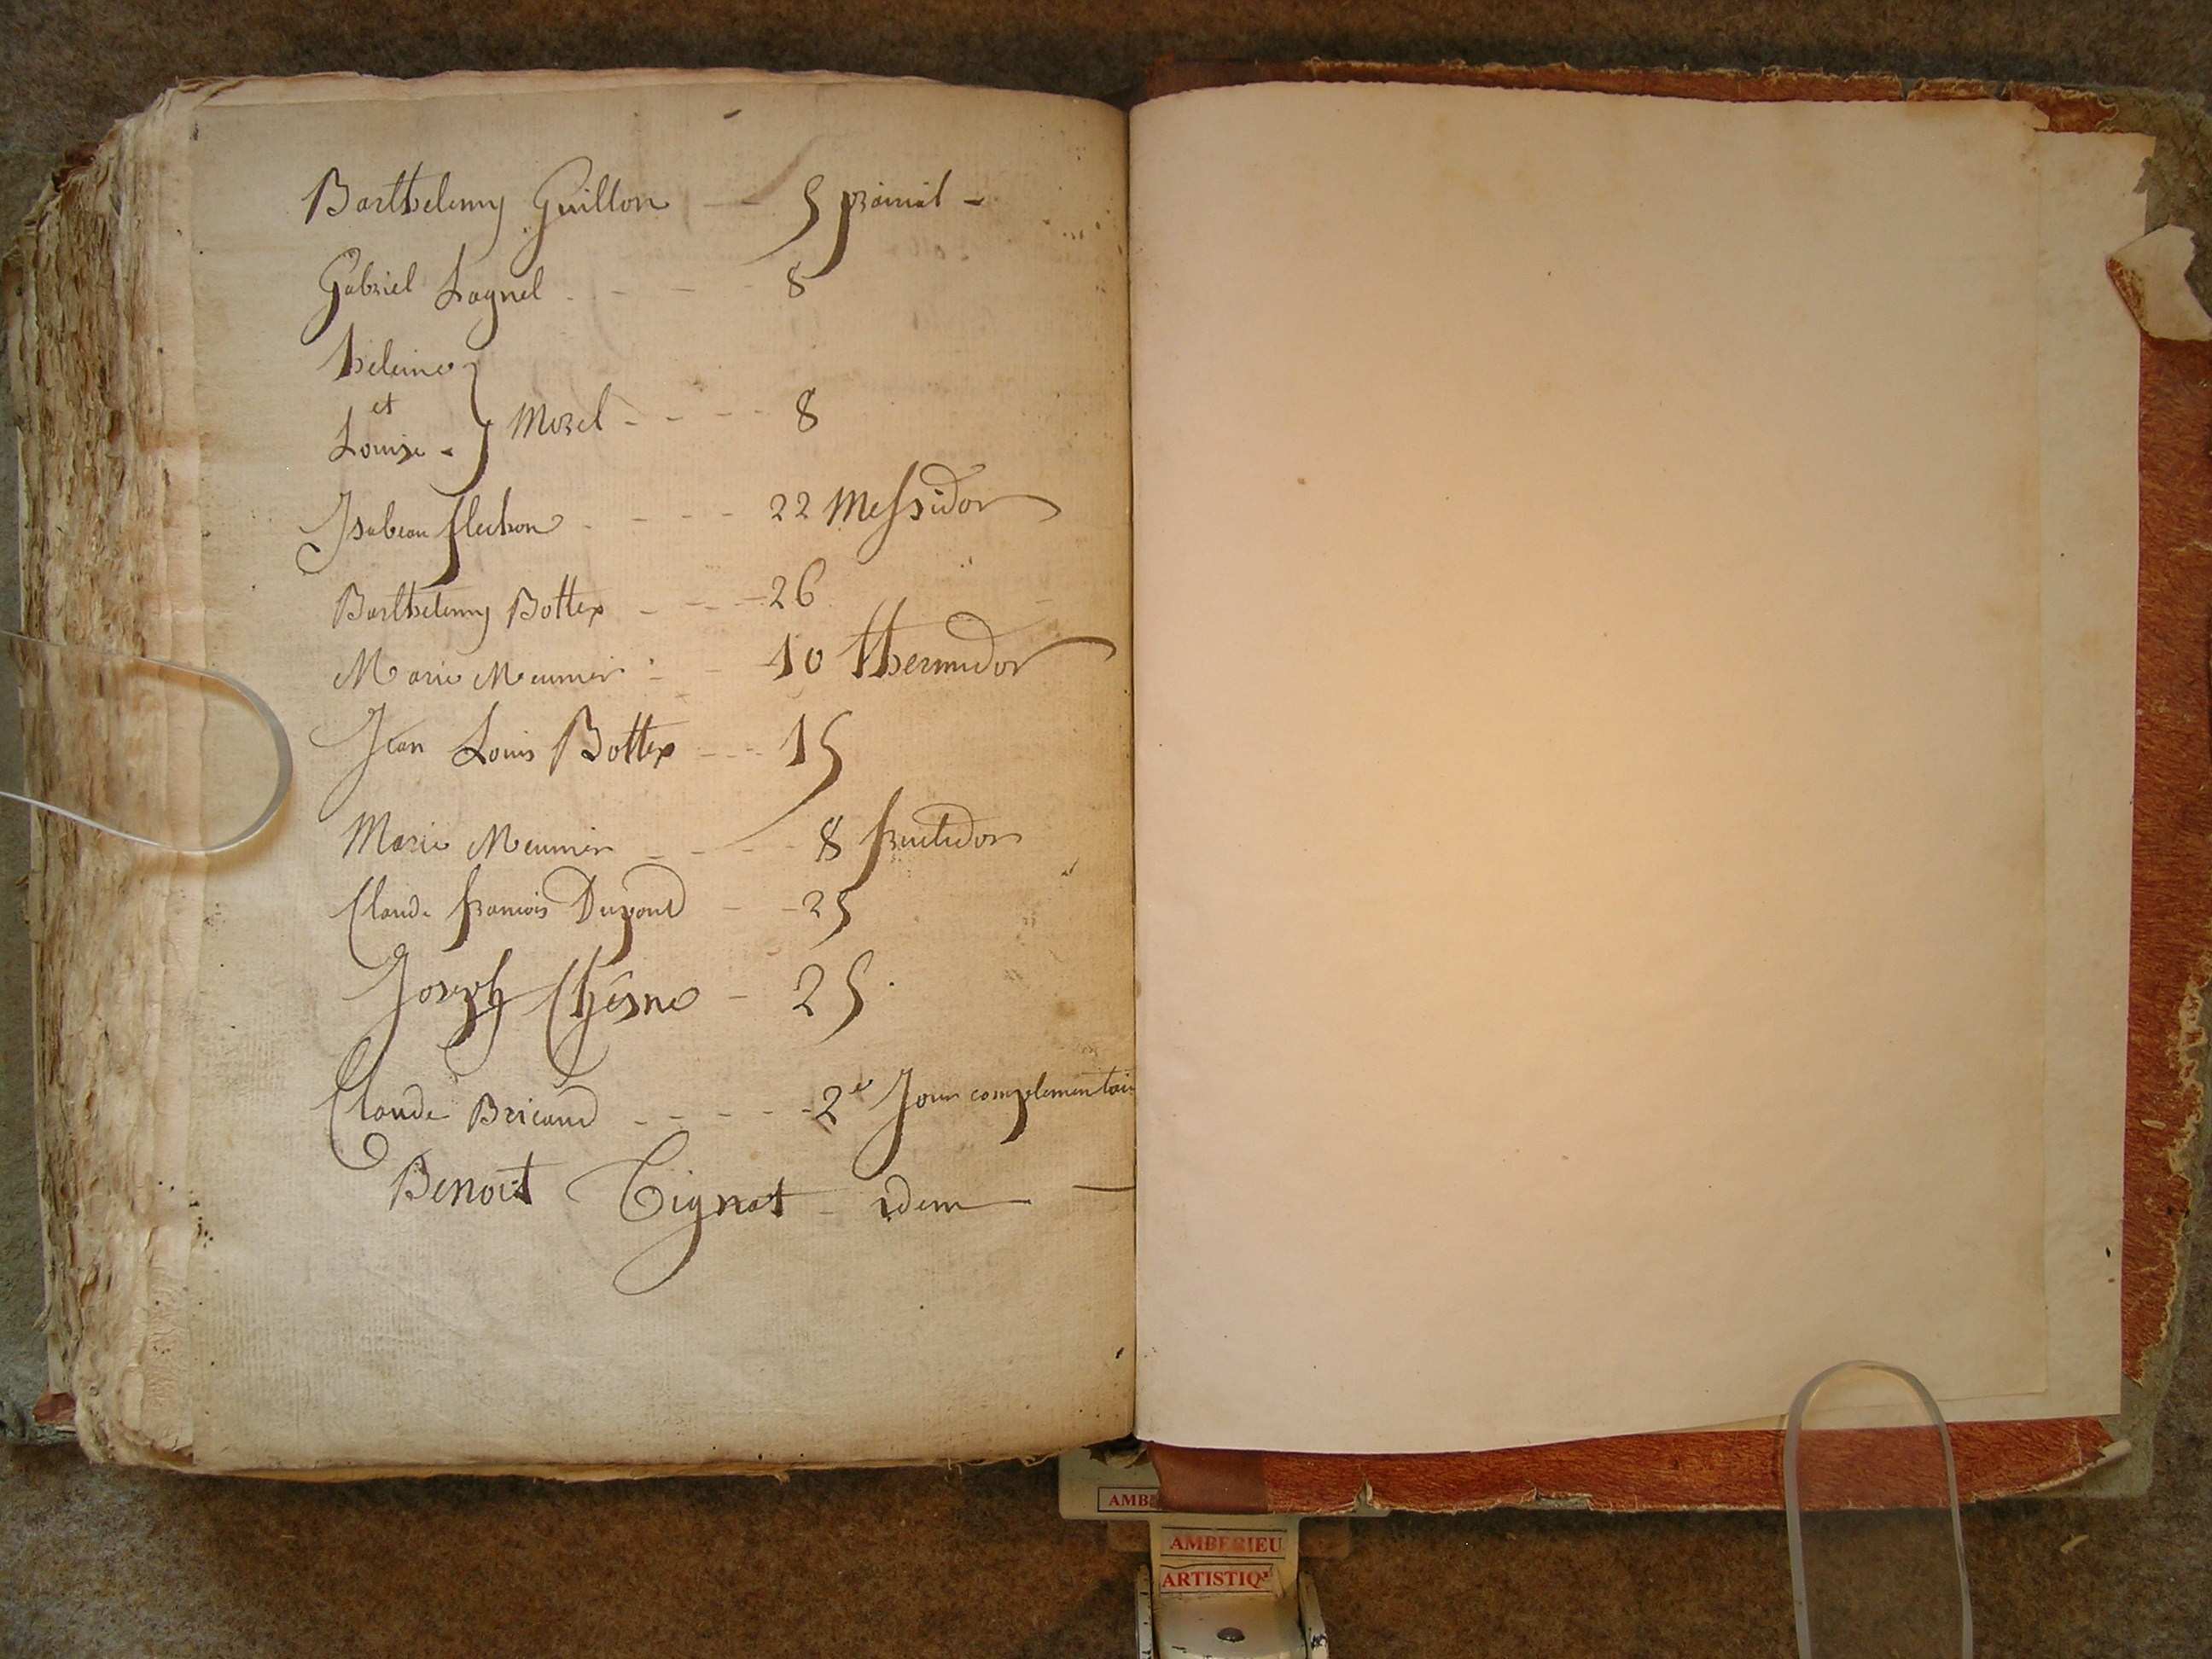 Barthelemy Guillon - - 5 prairial -
Gabriel Lagnel - - - - 8
heleine
et
Louise - } Morel - - - - 8
Isabeau flechon - - - - 22 Messidor
Barthelemy Bottex - - - 26
Marie Meunier - - 10 thermidor
Jean Louis Bottex - - - 15
Marie Meunier - - - - 8 fructidor
Claude francois Dupond - - 25
Joseph Chésne - 25.
Claude Bricaud - - - - - 2e Jour complementair
Benoit Tignat - idem
AMB
AMBERIEU
ARTISTIQ